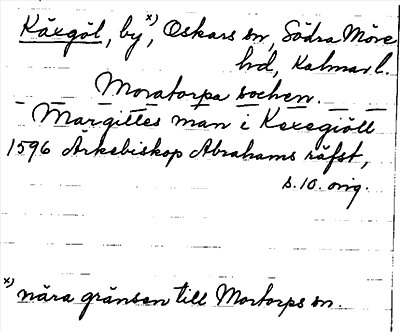 Käxgöl, by x), Oskars sn, Södra Möre
hd, Kalmar l.
Moratorpa sochen.
Margittes man i Kexegiöll
1596 Ärkebiskop Abrahams räfst,
s. 10. orig.
x) nära gränsen till Mortorps sn.